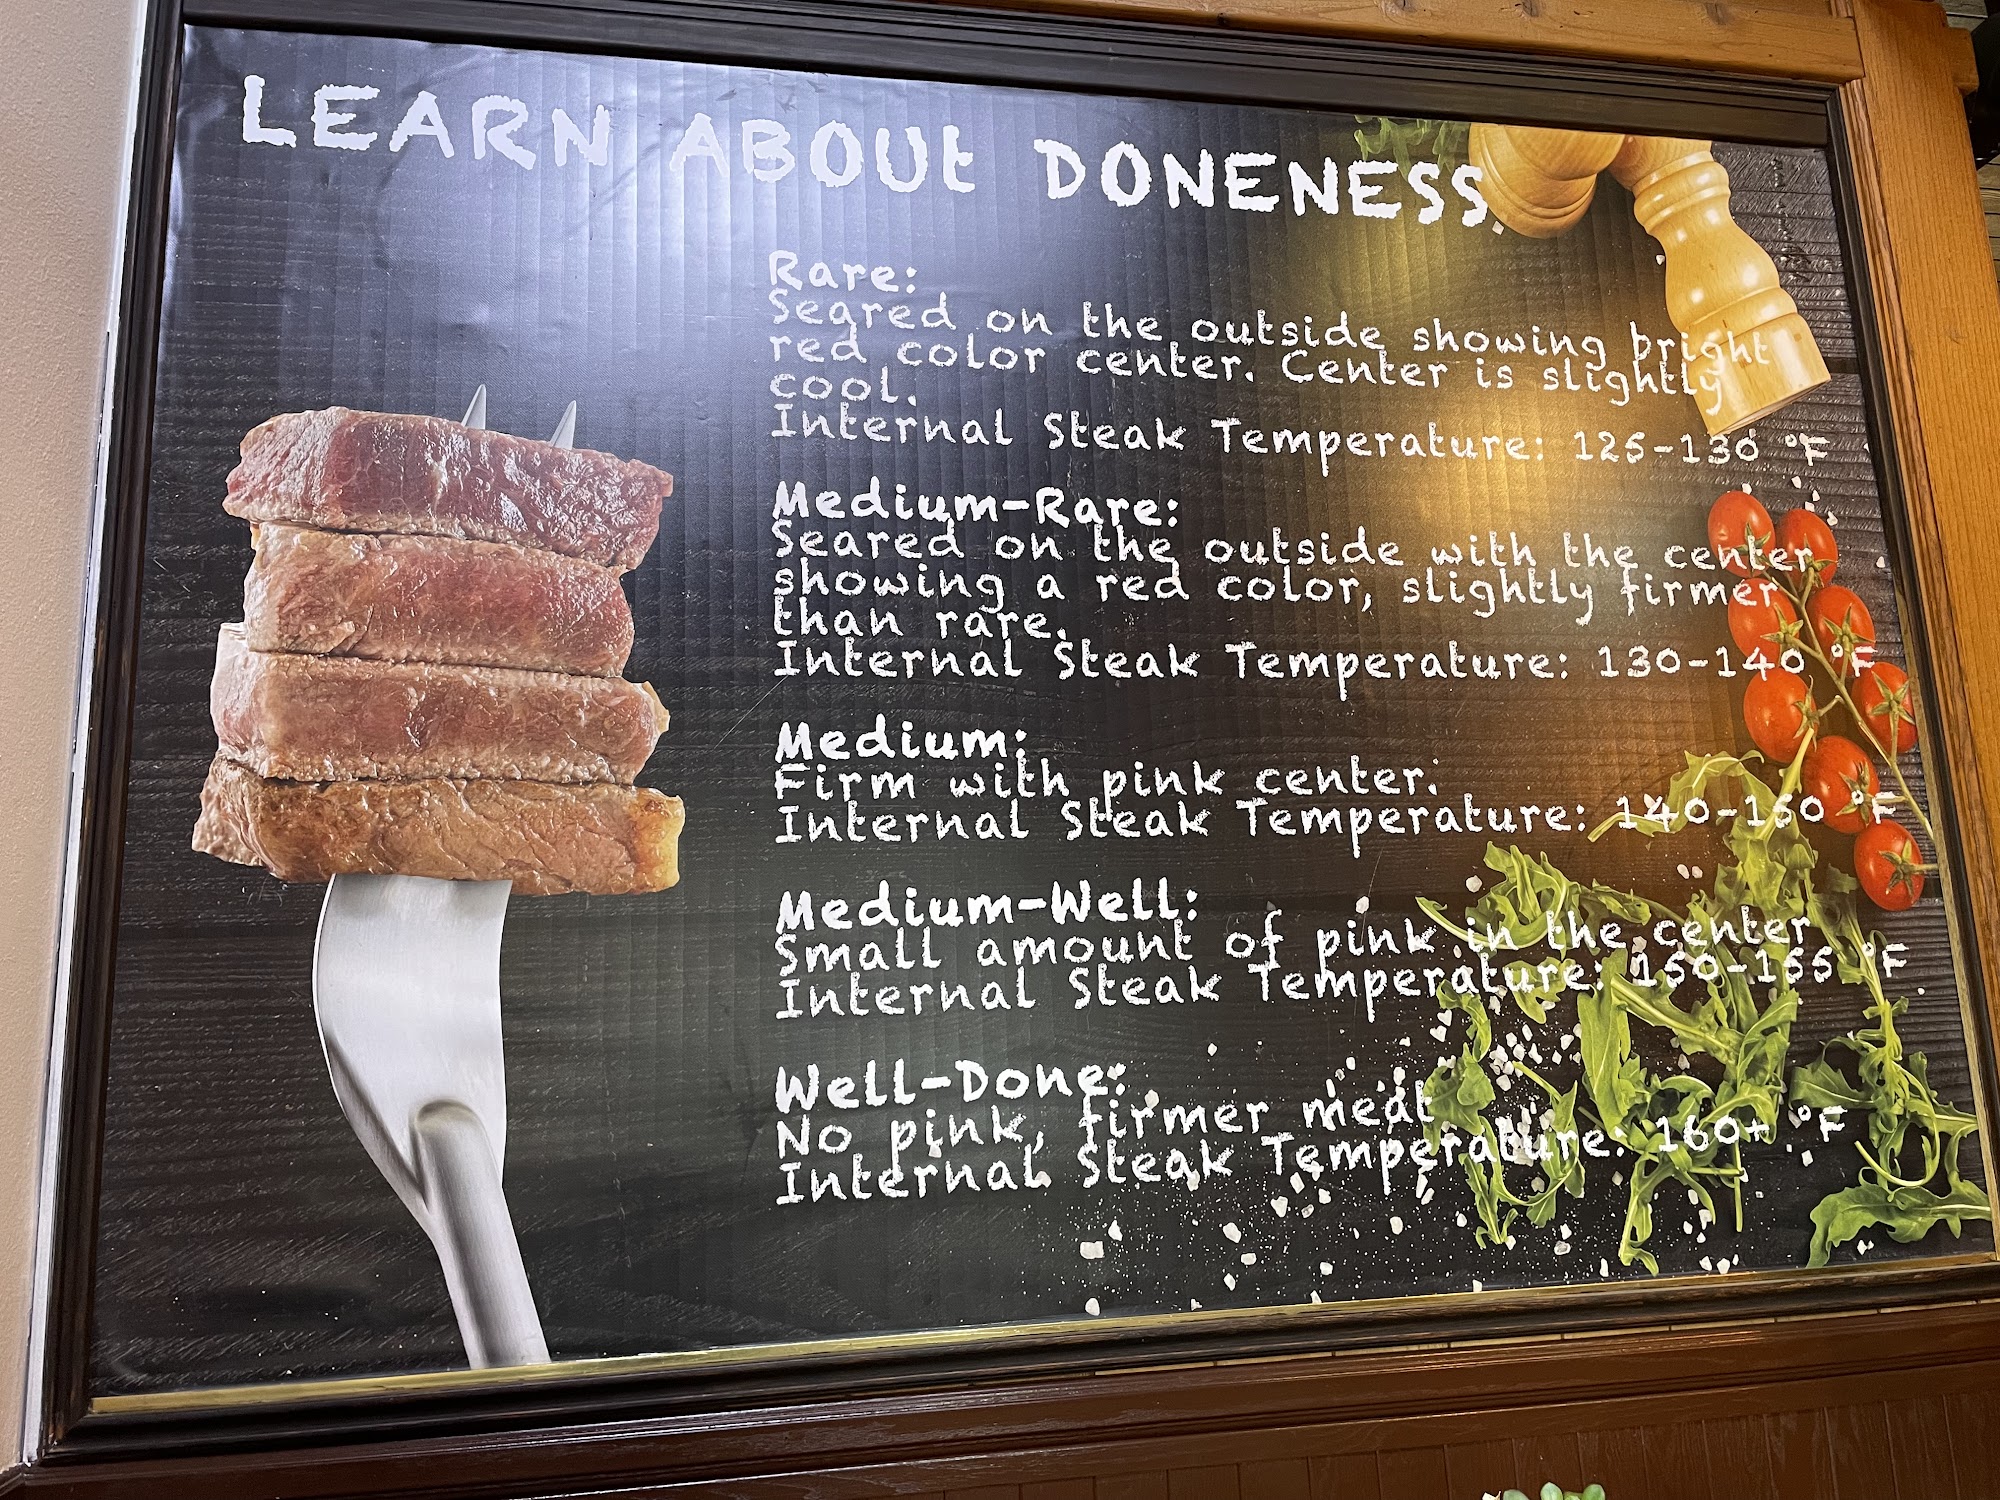 LEARN ABOUt DONENESS
Rare:
Seared on the outside showing bright
red color center. Center is slightly
cool.
Internal Steak Temperature: 125-130 °F
Medium-Rare:
Seared on the outside with the center
showing a red color, slightly firmer
than rare.
Internal Steak Temperature: 130-140 °F
Medium:
Firm with pink center.
Internal Steak Temperature: 140-150 °F
Medium-Well:
Small amount of pink in the center
Internal Steak Temperature: 150-155 °F
Well-Done:
No pink, firmer meat
Internal Steak Temperature: 160+ °F